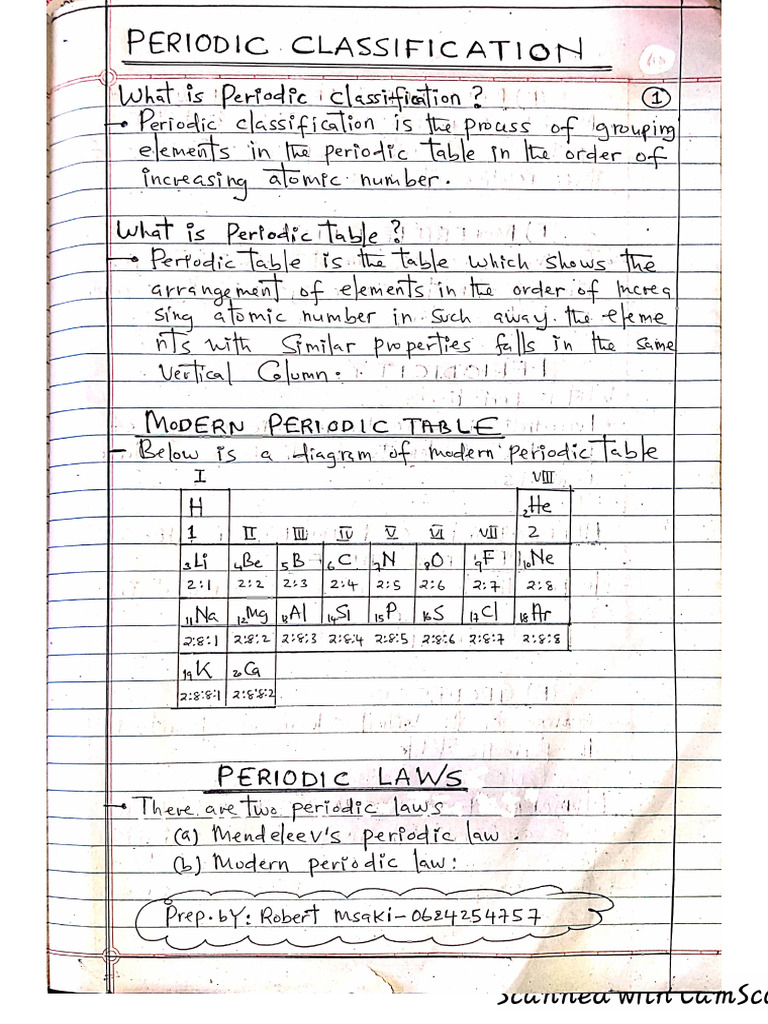 PERIODIC CLASSIFICATION
What is Periodic classification?
1
• Periodic classification is the process of grouping
elements in the periodic table in the order of
increasing atomic number.
What is Periodic table?
• Periodic table is the table which shows the
arrangement of elements in the order of Increa
sing atomic number in such away. the eleme
nts with similar properties falls in the same
vertical Column.
MODERN PERIODIC TABLE
- Below is a diagram of modern periodic table
I VIII
H 2He
1 II III IV V VI VII 2
3Li 4Be 5B 6C 7N 8O 9F 10Ne
2:1 2:2 2:3 2:4 2:5 2:6 2:7 2:8
11Na 12Mg 13Al 14Si 15P 16S 17Cl 18Ar
2:8:1 2:8:2 2:8:3 2:8:4 2:8:5 2:8:6 2:8:7 2:8:8
19K 20Ca
2:8:8:1 2:8:8:2
PERIODIC LAWS
• There are two periodic laws
(a) Mendeleev's periodic law.
(b) Modern periodic law:
Prep. by: Robert Msaki-0624254757
Scanned with CamSca